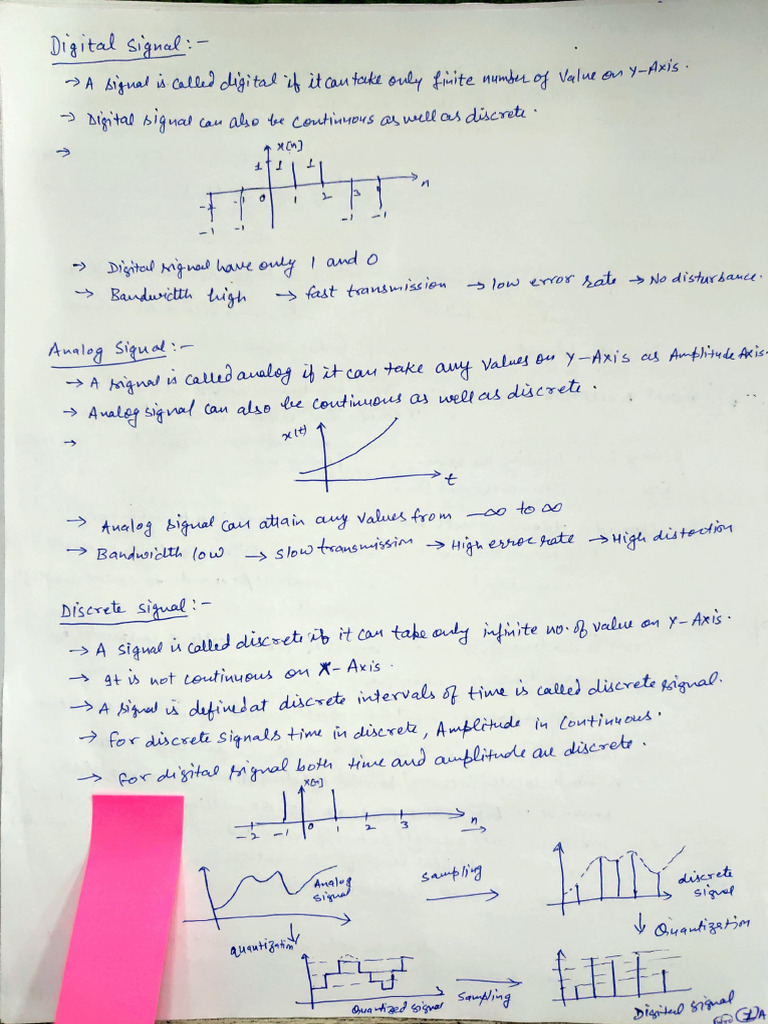 Digital Signal:-
→ A signal is called digital if it can take only finite number of value on Y-Axis.
→ Digital signal can also be continuous as well as discrete.
→
x[n]
1 1 1
-2 -1 0 1 2 3 n
-1 -1 -1 -1
→ Digital signal have only 1 and 0
→ Bandwidth high → fast transmission → low error rate → No disturbance.
Analog Signal:-
→ A signal is called analog if it can take any values on Y-Axis as Amplitude Axis.
→ Analog signal can also be continuous as well as discrete.
→
x(t)
t
→ Analog signal can attain any values from -∞ to ∞
→ Bandwidth low → slow transmission → High error rate → High distoction
Discrete signal:-
→ A signal is called discrete if it can take only infinite no. of value on Y-Axis.
→ It is not continuous on X-Axis.
→ A signal is defined at discrete intervals of time is called discrete signal.
→ for discrete signals time in discrete, Amplitude in continuous.
→ for digital signal both time and amplitude are discrete.
x[n]
-2 -1 0 1 2 3 n
Analog signal
Sampling
discrete signal
Quantization
Quantization
Quantized signal
Sampling
Digital signal